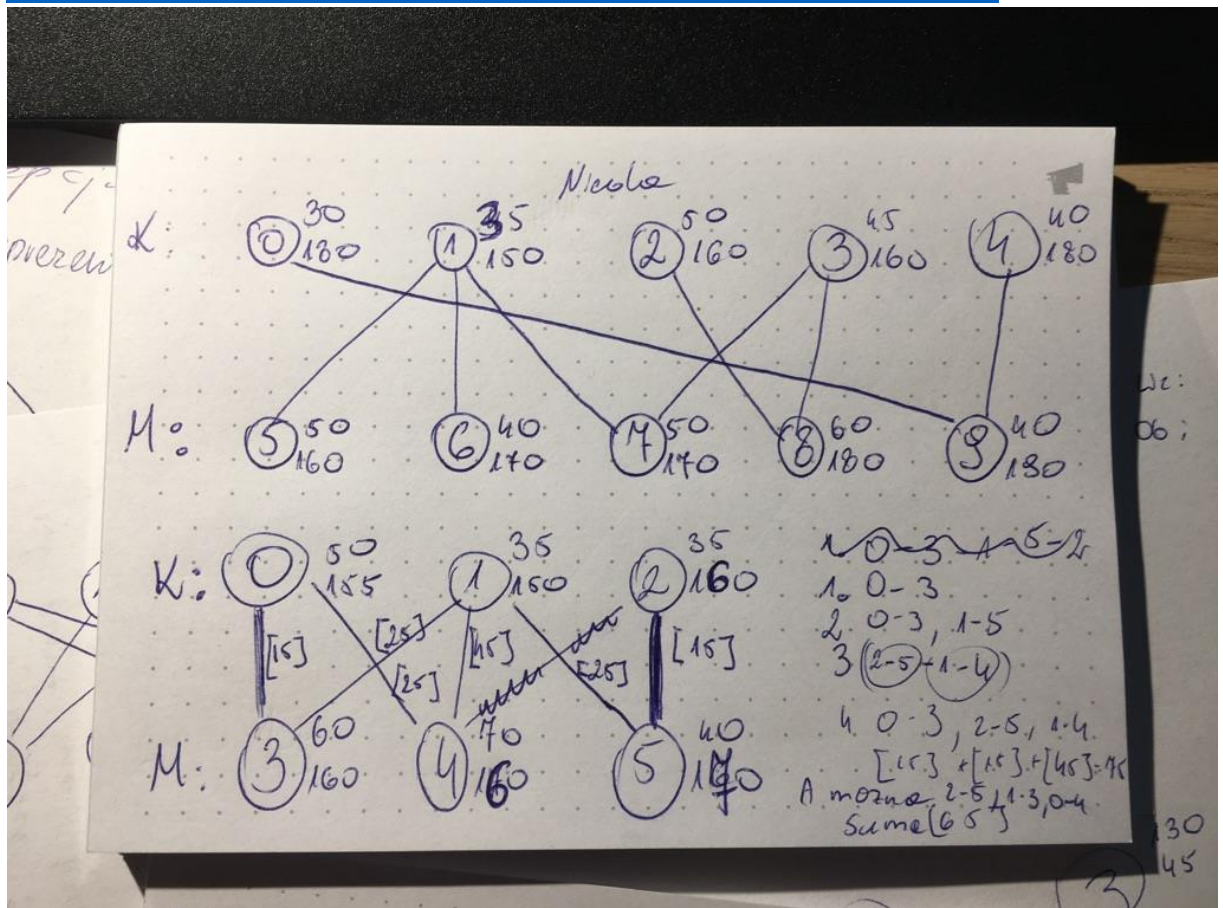 Nicola
K: 0 30 180 1 35 150 2 50 160 3 45 160 4 40 180
M: 5 50 160 6 40 170 7 50 170 8 60 180 9 40 190
K: 0 50 155 1 35 150 2 35 160
[15] [25] [25] [45] [25] [15]
M: 3 60 160 4 70 160 5 40 170
1. 0-3-1-5-2
1. 0-3
2. 0-3, 1-5
3 (2-5)-(1-4)
4 0-3, 2-5, 1-4
[15]+[15]+[45]=75
A można 2-5, 1-3, 0-4
Suma [65]
130
45
2